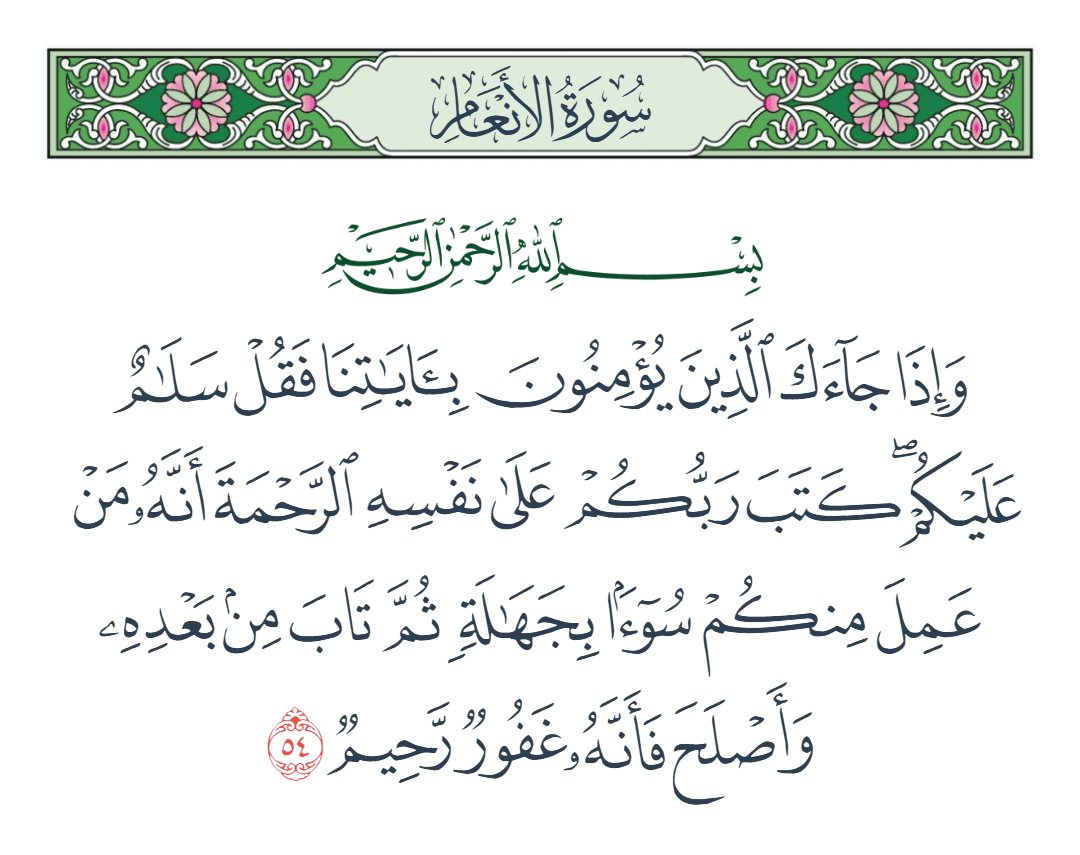 سُورَةُ الأَنْعَامِ
بِسْمِ ٱللَّهِ ٱلرَّحْمَٰنِ ٱلرَّحِيمِ
وَإِذَا جَآءَكَ ٱلَّذِينَ يُؤْمِنُونَ بِـَٔايَٰتِنَا فَقُلْ سَلَٰمٌ
عَلَيْكُمْ ۖ كَتَبَ رَبُّكُمْ عَلَىٰ نَفْسِهِ ٱلرَّحْمَةَ أَنَّهُۥ مَنْ
عَمِلَ مِنكُمْ سُوٓءًۢا بِجَهَٰلَةٍ ثُمَّ تَابَ مِنۢ بَعْدِهِۦ
وَأَصْلَحَ فَأَنَّهُۥ غَفُورٌ رَّحِيمٌ ٥٤